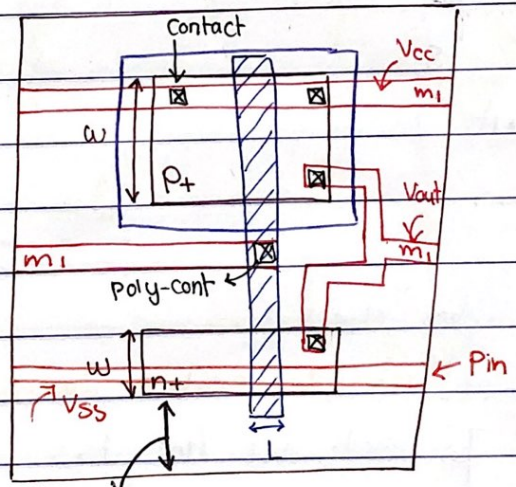 Contact
Vcc
m1
w
P+
Vout
m1
m1
Poly-cont
w
n+
Pin
Vss
L